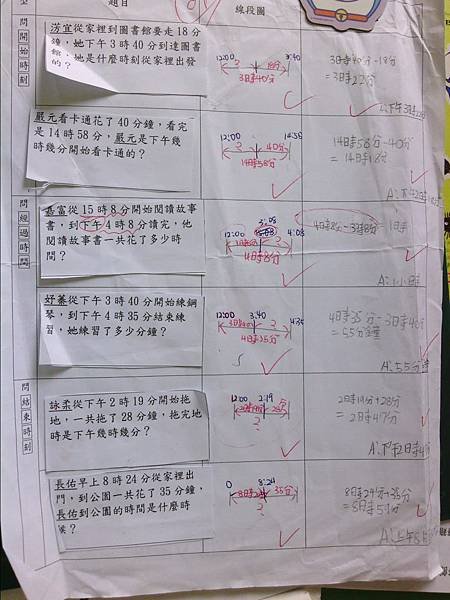 題目
線段圖
問開始時刻
芳宜從家裡到圖書館要走18分
鐘，她下午3時40分到達圖書
館的？她是什麼時刻從家裡出發
12:00
3:40
?
18分
3時40分
3時40分-18分
=3時22分
嚴元看卡通花了40分鐘，看完
是14時58分，嚴元是下午幾
時幾分開始看卡通的？
12:00
?
40分
14時58分
14時58分-40分
=14時18分
問經過時間
嘉富從15時8分開始閱讀故事
書，到下午4時8分讀完，他
閱讀故事書一共花了多少時
間？
12:00
3:08
4:08
4時8分
4時8分-3時8分=1時
A:1小時
妤蓁從下午3時40分開始練鋼
琴，到下午4時35分結束練
習，她練習了多少分鐘？
12:00
3:40
?
4時35分
4時35分-3時40分
=55分鐘
A:55分鐘
問結束時刻
詠柔從下午2時19分開始拖
地，一共拖了28分鐘，拖完地
時是下午幾時幾分？
12:00
2:19
2時19分
28分
?
2時19分+28分
=2時47分
長佑早上8時24分從家裡出
門，到公園一共花了35分鐘，
長佑到公園的時間是什麼時
候？
0
8:24
8時24分
35分
?
8時24分+35分
=8時59分